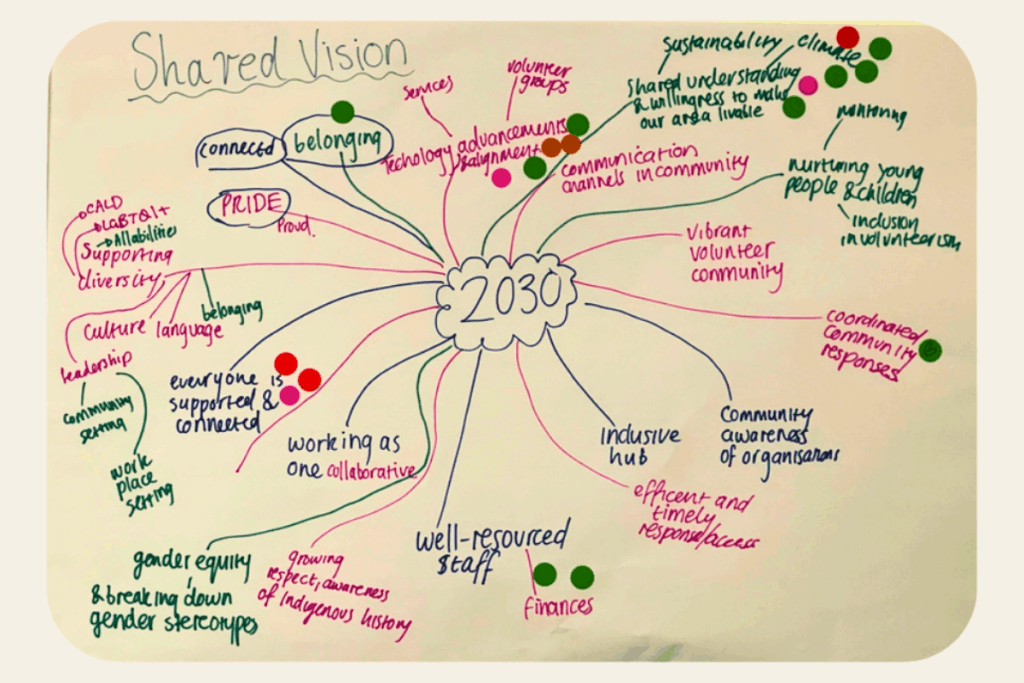 Shared Vision
services
volunteer
groups
Techology advancements
& alignment
communication
channels in community
sustainability
climate
shared understanding
& willingness to make
our area livable
mentoring
nurturing young
people & children
inclusion
in volunteerism
connected
belonging
PRIDE
Proud.
CALD
LGBTQI+
All abilities
Supporting
diversity
belonging
culture
language
leadership
community
setting
work
place
setting
2030
vibrant
volunteer
community
coordinated
community
responses
everyone is
supported &
connected
working as
one collaborative
inclusive
hub
Community
awareness
of organisations
efficent and
timely
response/access
well-resourced
staff
finances
gender equity
& breaking down
gender stereotypes
growing
respect, awareness
of Indigenous history